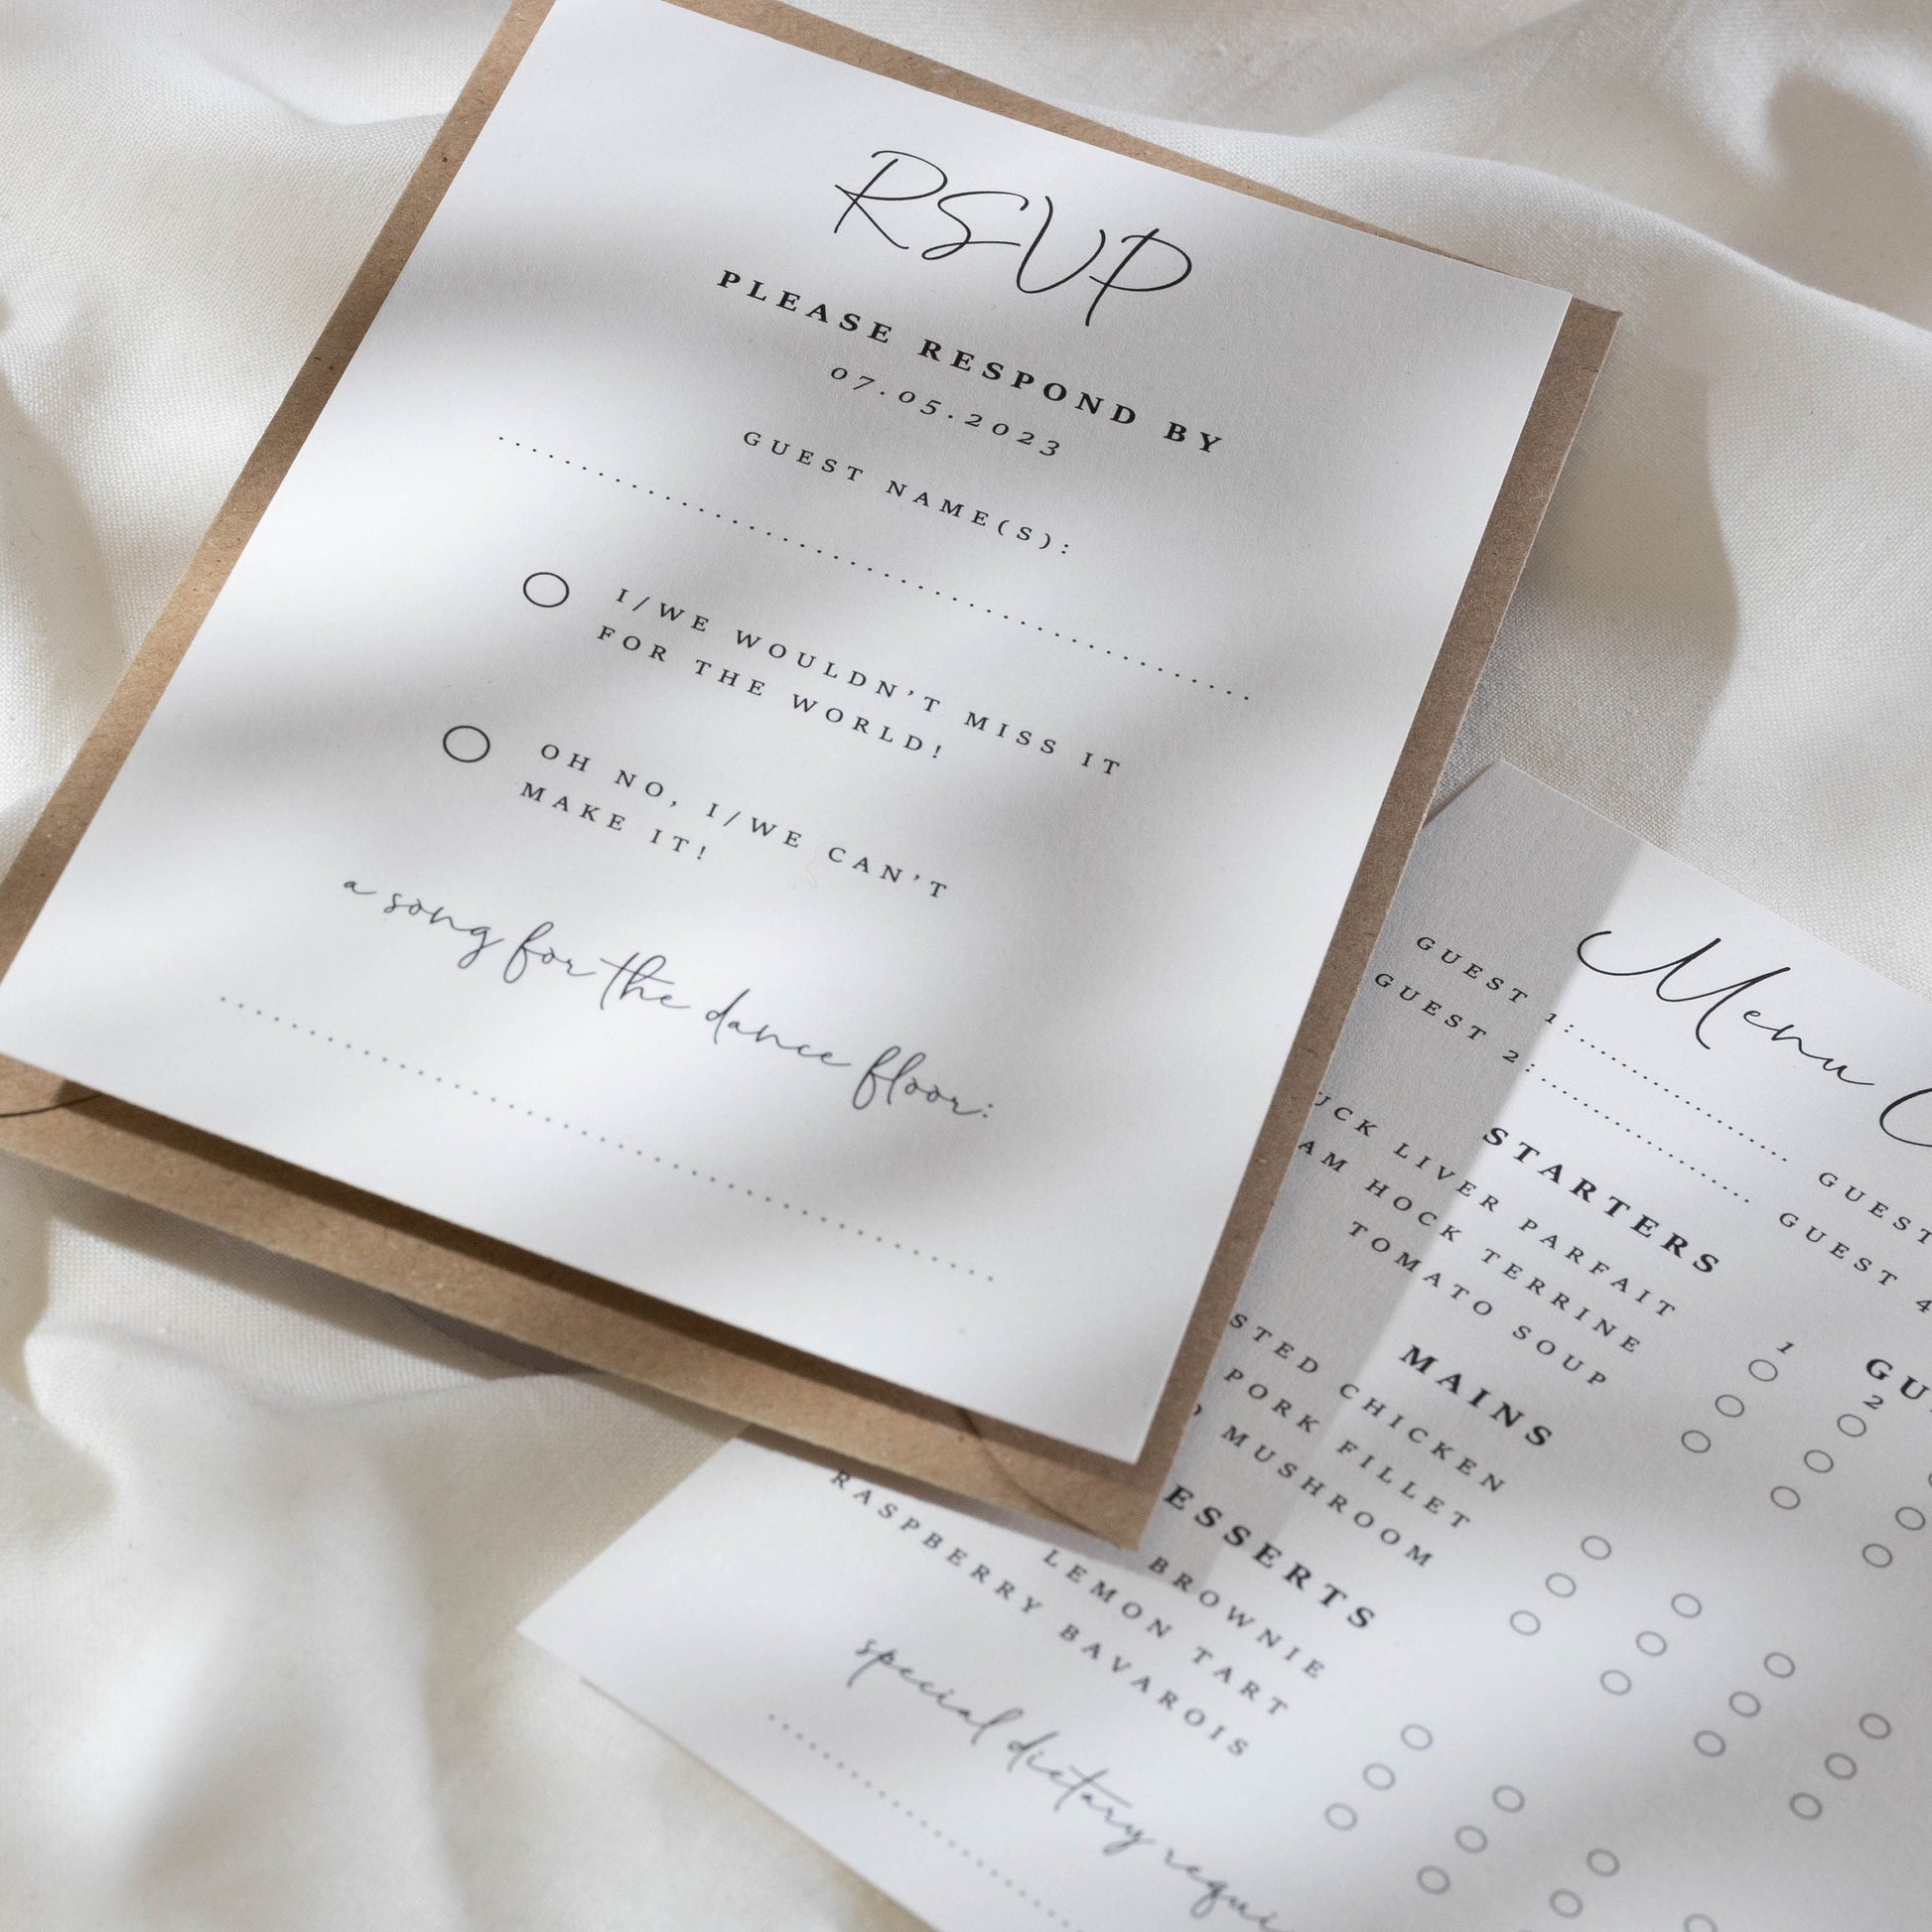 RSVP
PLEASE RESPOND BY
07.05.2023
GUEST NAME(S):
I/WE WOULDN'T MISS IT
FOR THE WORLD!
OH NO, I/WE CAN'T
MAKE IT!
a song for the dance floor:
Menu
GUEST 1:
GUEST
GUEST 2:
GUEST 4
STARTERS
1
2
LIVER PARFAIT
HOCK TERRINE
TOMATO SOUP
MAINS
CHICKEN
PORK FILLET
MUSHROOM
BROWNIE
LEMON TART
RASPBERRY BAVAROIS
special dietary